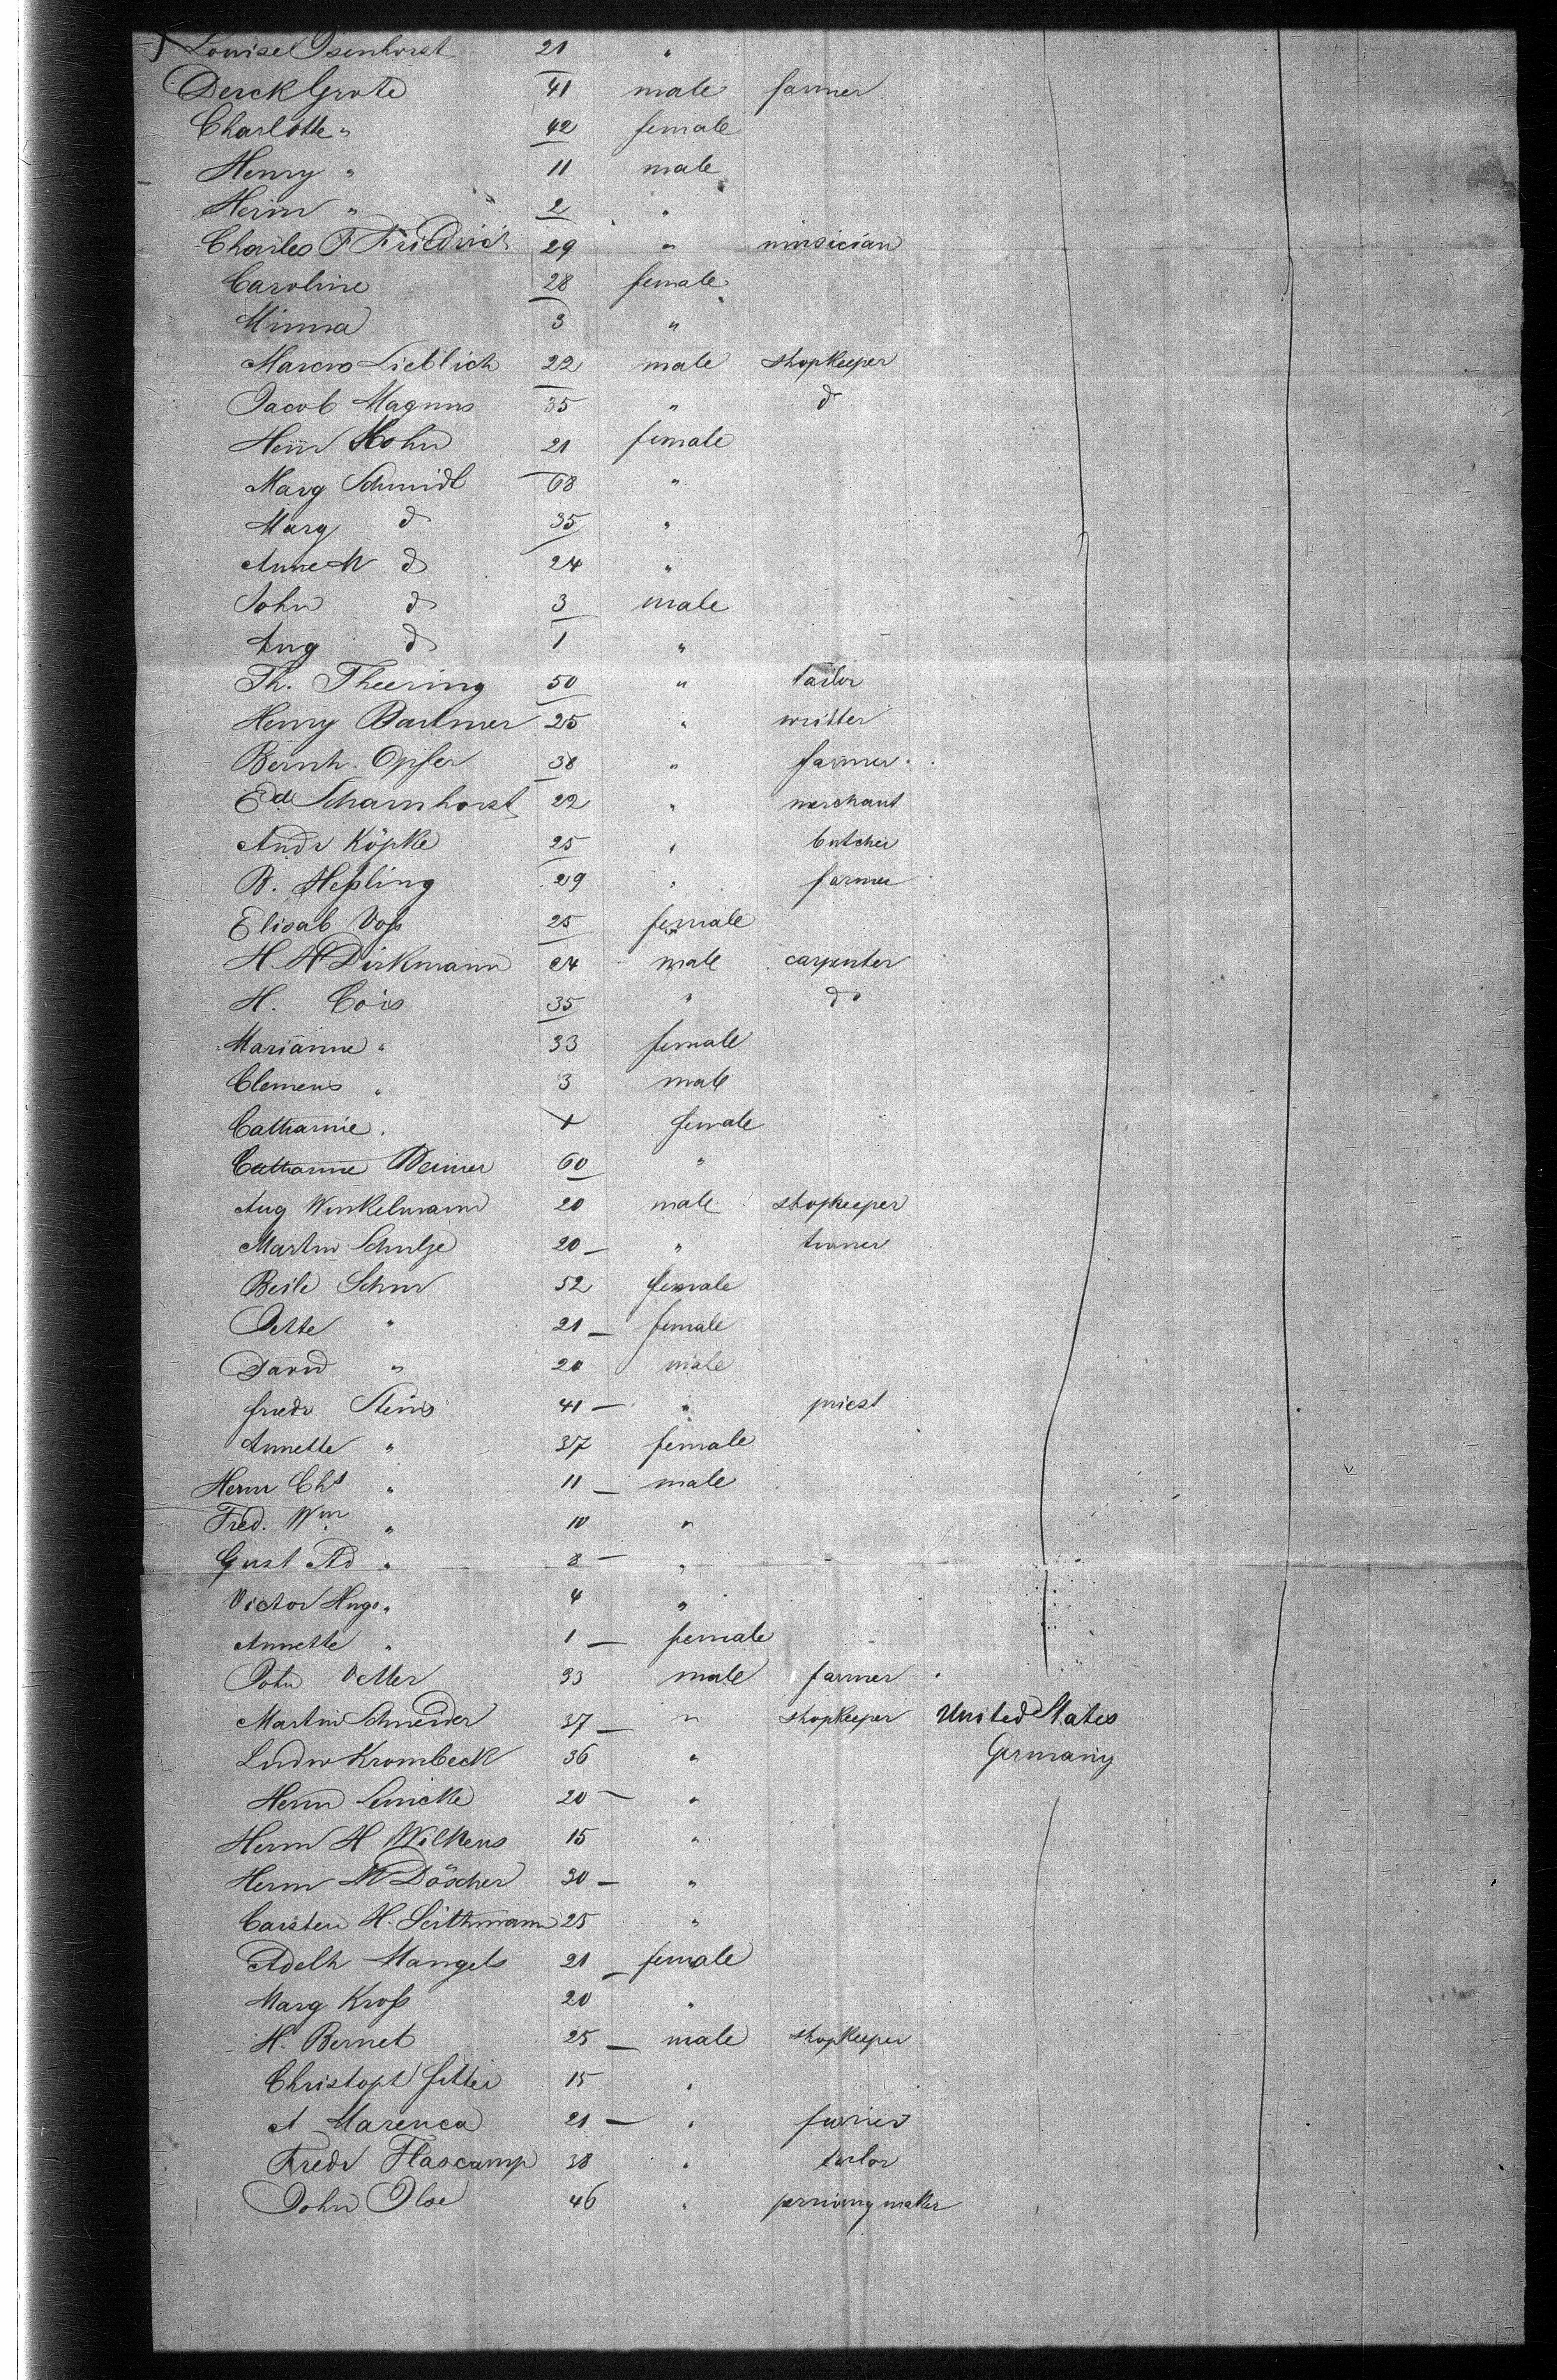 Louise Isenhorst 21 "
Derck Grote 41 male farmer
Charlotte " 42 female
Henry " 11 male
Herm " 2 "
Charles F Friedrich 29 " musician
Caroline 28 female
Minna 3 "
Marcus Lieblich 22 male shopkeeper
Jacob Magnus 35 " d
Henr Kohn 21 female
Marg Schmidt 68 "
Marg d 35 "
Anne M d 24 "
John d 3 male
Aug d 1 "
Th. Theering 50 " tailor
Henry Bartmer 25 " writter
Bernh. Opfer 38 " farmer
Edd Scharnhorst 22 " merchant
Andr Köpke 25 " butcher
B. Heßling 29 " farmer
Elisab Voß 25 female
H. H Dirkmann 24 male carpenter
H. Cois 35 " do
Marianne " 33 female
Clemens " 3 male
Catharine female
Catharine Weimer 60 "
Aug Winkelmann 20 male shopkeeper
Martin Schulze 20 "
Beile Schur 52 female
Jette " 21 female
David " 20 male
Friedr Steins 41 " priest
Annette " 37 female
Herm Chs " 11 male
Fred. Wm " 10 "
Gust Ad " 8 "
Victor Hugo " 4 "
Annette " 1 female
John Vetter 33 male farmer
Martin Schneider 37 " shopkeeper United States
Ludw Krombeck 36 " Germany
Herm Lemcke 20 "
Herm H Wilkens 15 "
Herm M Döscher 30 "
Carsten H. Seithmann 25 "
Adelh Mangels 21 female
Marg Kroß 20 "
H. Bernet 25 male shopkeeper
Christoph Fetter 15 "
A Marenca 21 " furrier
Fredr Flascamp 38 " tailor
John Ilse 46 " maker